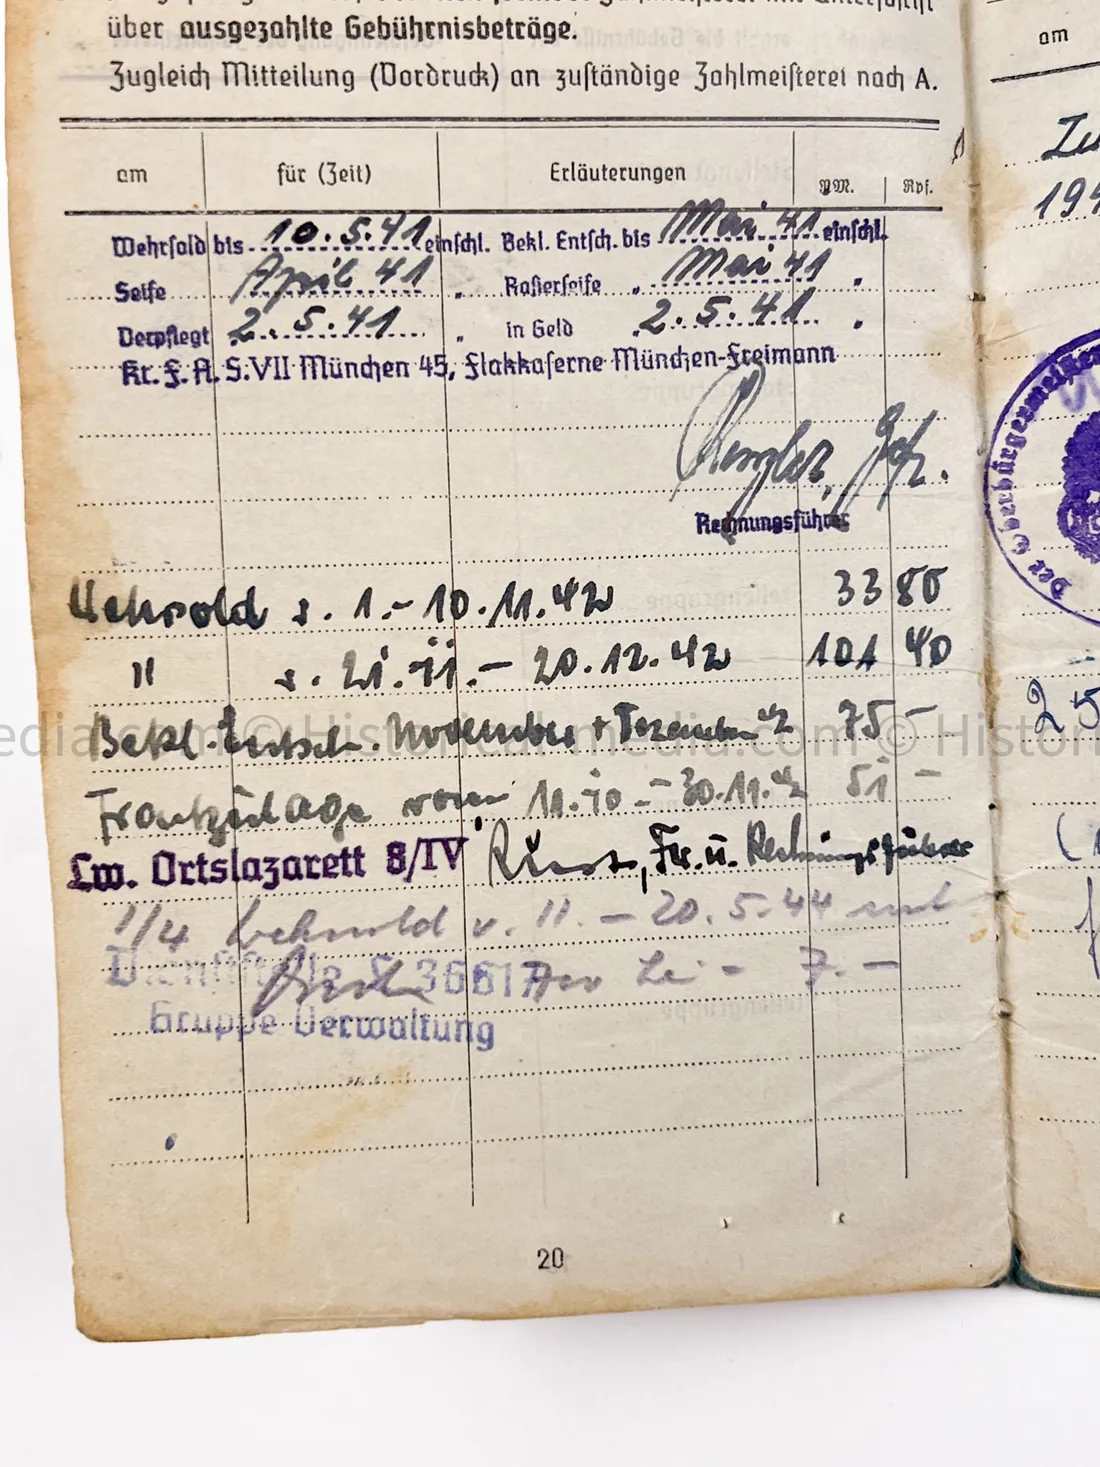 über ausgezahlte Gebührnisbeträge.
Zugleich Mitteilung (Vordruck) an zuständige Zahlmeisterei nach A.
am für (Zeit) Erläuterungen RM. Rpf.
Wehrsold bis 10.5.41 einschl. Bekl. Entsch. bis Mai 41 einschl.
Seife April 41 " Rasierseife " Mai 41 "
Verpflegt 2.5.41 " in Geld 2.5.41 "
Kr. F. A. S. VII München 45, Flakkaserne München-Freimann
Gefr.
Rechnungsführer
Wehrsold v. 1.-10.11.42 33 80
" v. 21.11.- 20.12.42 101 40
Bekl. Entsch. November + Dezember 42 75 -
Frontzulage vom 11.10.- 30.11.42 51 -
Lw. Ortslazarett 8/IV , Fw. u. Rechnungsführer
Wehrsold v. 11. - 20.5.44 mit
Dienststelle L 36617 Lei - 7.-
Gruppe Verwaltung
20
am
194
Der Oberzahlmeister
25
© Historical-media.com © Histori